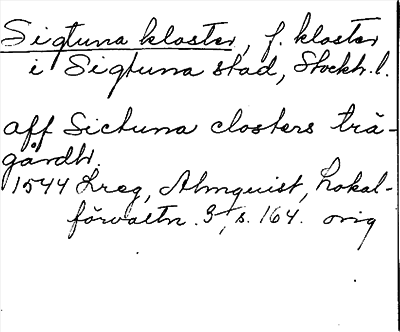 Sigtuna kloster, f. kloster
i Sigtuna stad, Stockh. l.
aff Sictuna closters trä-
gårdh.
1544 Kreg, Almquist, Lokal-
förvaltn. 3, s. 164. orig